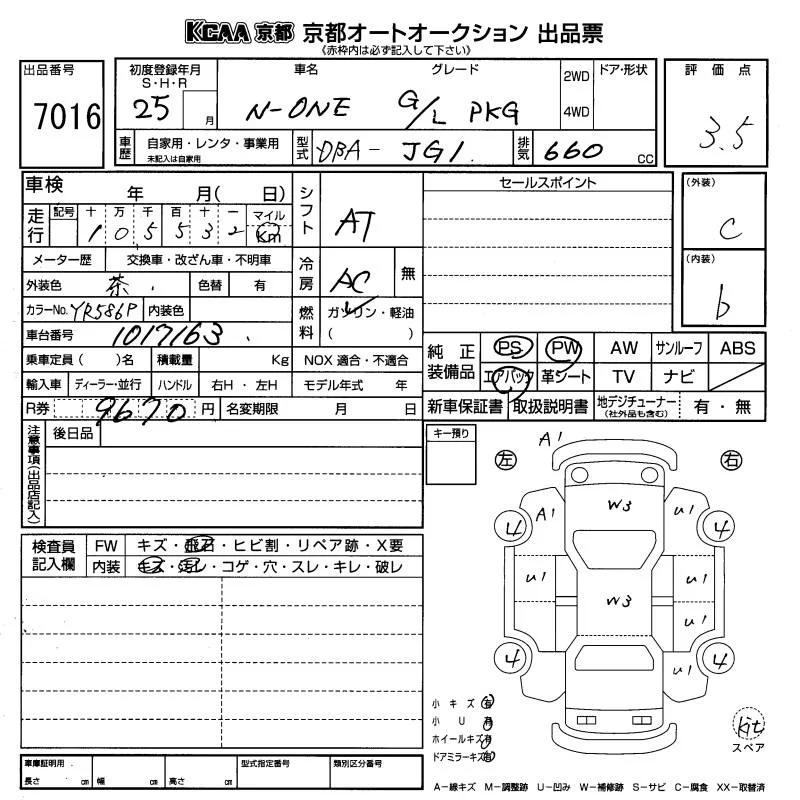 KCAA 京都 京都オートオークション 出品票
《赤枠内は必ず記入して下さい》
出品番号
7016
初度登録年月
S・H・R
25 月
車名 グレード
N-ONE G/L PKG
2WD
4WD
ドア・形状
評価点
3.5
車歴 自家用・レンタ・事業用
未記入は自家用
型式 DBA- JG1
排気 660 CC
車検 年 月( 日)
走行 記号 十 万 千 百 十 一 マイル
1 0 5 5 3 2 Km
シフト AT
メーター歴 交換車・改ざん車・不明車
外装色 茶 色替 有
冷房 AC 無
カラーNo. YR586P 内装色
燃料 ガソリン・軽油
( )
車台番号 1017163
乗車定員( )名 積載量 Kg NOX 適合・不適合
輸入車 ディーラー・並行 ハンドル 右H・左H モデル年式 年
R券 9670 円 名変期限 月 日
セールスポイント
(外装)
C
(内装)
b
純正装備品 PS PW AW サンルーフ ABS
エアバック 革シート TV ナビ
新車保証書 取扱説明書 地デジチューナー
(社外品も含む) 有・無
注意事項(出品店記入)
後日品
キー預り
検査員記入欄 FW キズ・飛石・ヒビ割・リペア跡・X要
内装 キズ・汚レ・コゲ・穴・スレ・キレ・破レ
左 右
A1
A1 W3 U1
4 4
U1 U1
W3 U1
4 U1 4
小キズ 有
小U 有
ホイールキズ 有
ドアミラーキズ 有
kit
スペア
車庫証明用
長さ cm 幅 cm 高さ cm
型式指定番号
類別区分番号
A−線キズ M−調整跡 U−凹み W−補修跡 S−サビ C−腐食 XX−取替済